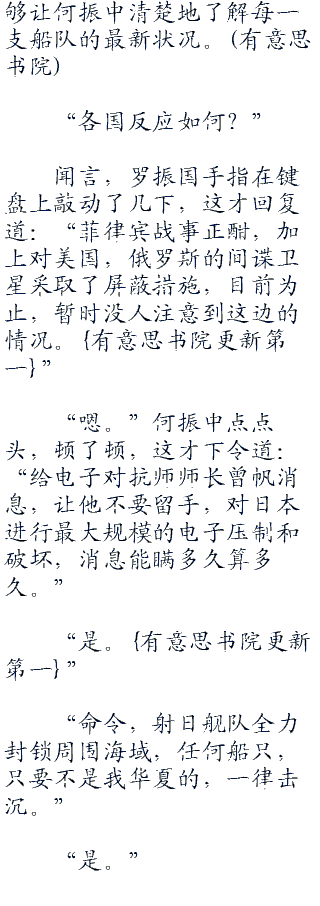 够让何振中清楚地了解每一
支船队的最新状况。(有意思
书院)
“各国反应如何？”
闻言，罗振国手指在键
盘上敲动了几下，这才回复
道：“菲律宾战事正酣，加
上对美国，俄罗斯的间谍卫
星采取了屏蔽措施，目前为
止，暂时没人注意到这边的
情况。{有意思书院更新第
一}”
“嗯。”何振中点点
头，顿了顿，这才下令道：
“给电子对抗师师长曾帆消
息，让他不要留手，对日本
进行最大规模的电子压制和
破坏，消息能瞒多久算多
久。”
“是。{有意思书院更新
第一}”
“命令，射日舰队全力
封锁周围海域，任何船只，
只要不是我华夏的，一律击
沉。”
“是。”